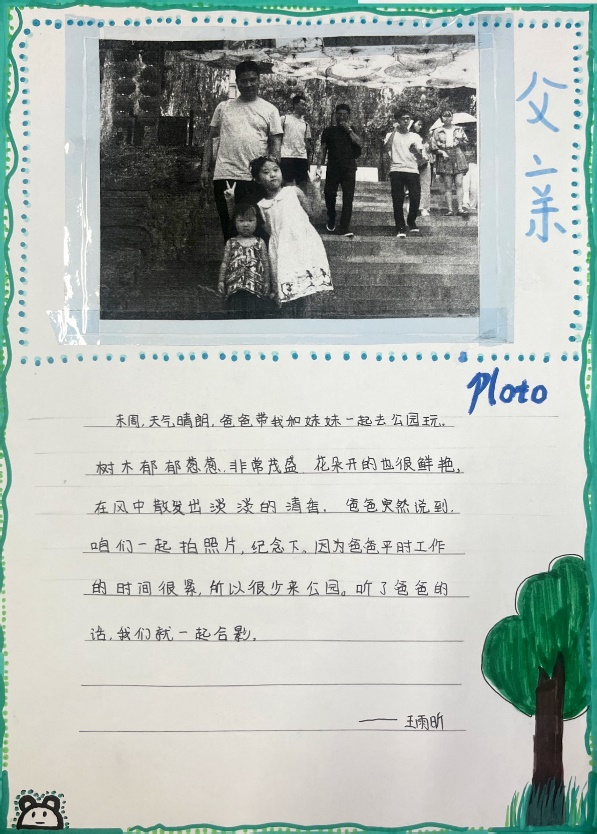 父亲
Ploto
末周,天气晴朗,爸爸带我和妹妹一起去公园玩。
树木郁郁葱葱、非常茂盛 花朵开的也很鲜艳。
在风中散发出淡淡的清香, 爸爸突然说到,
咱们一起拍照片,纪念下。因为爸爸平时工作
的时间很紧,所以很少来公园。听了爸爸的
话,我们就一起合影。
——王雨昕